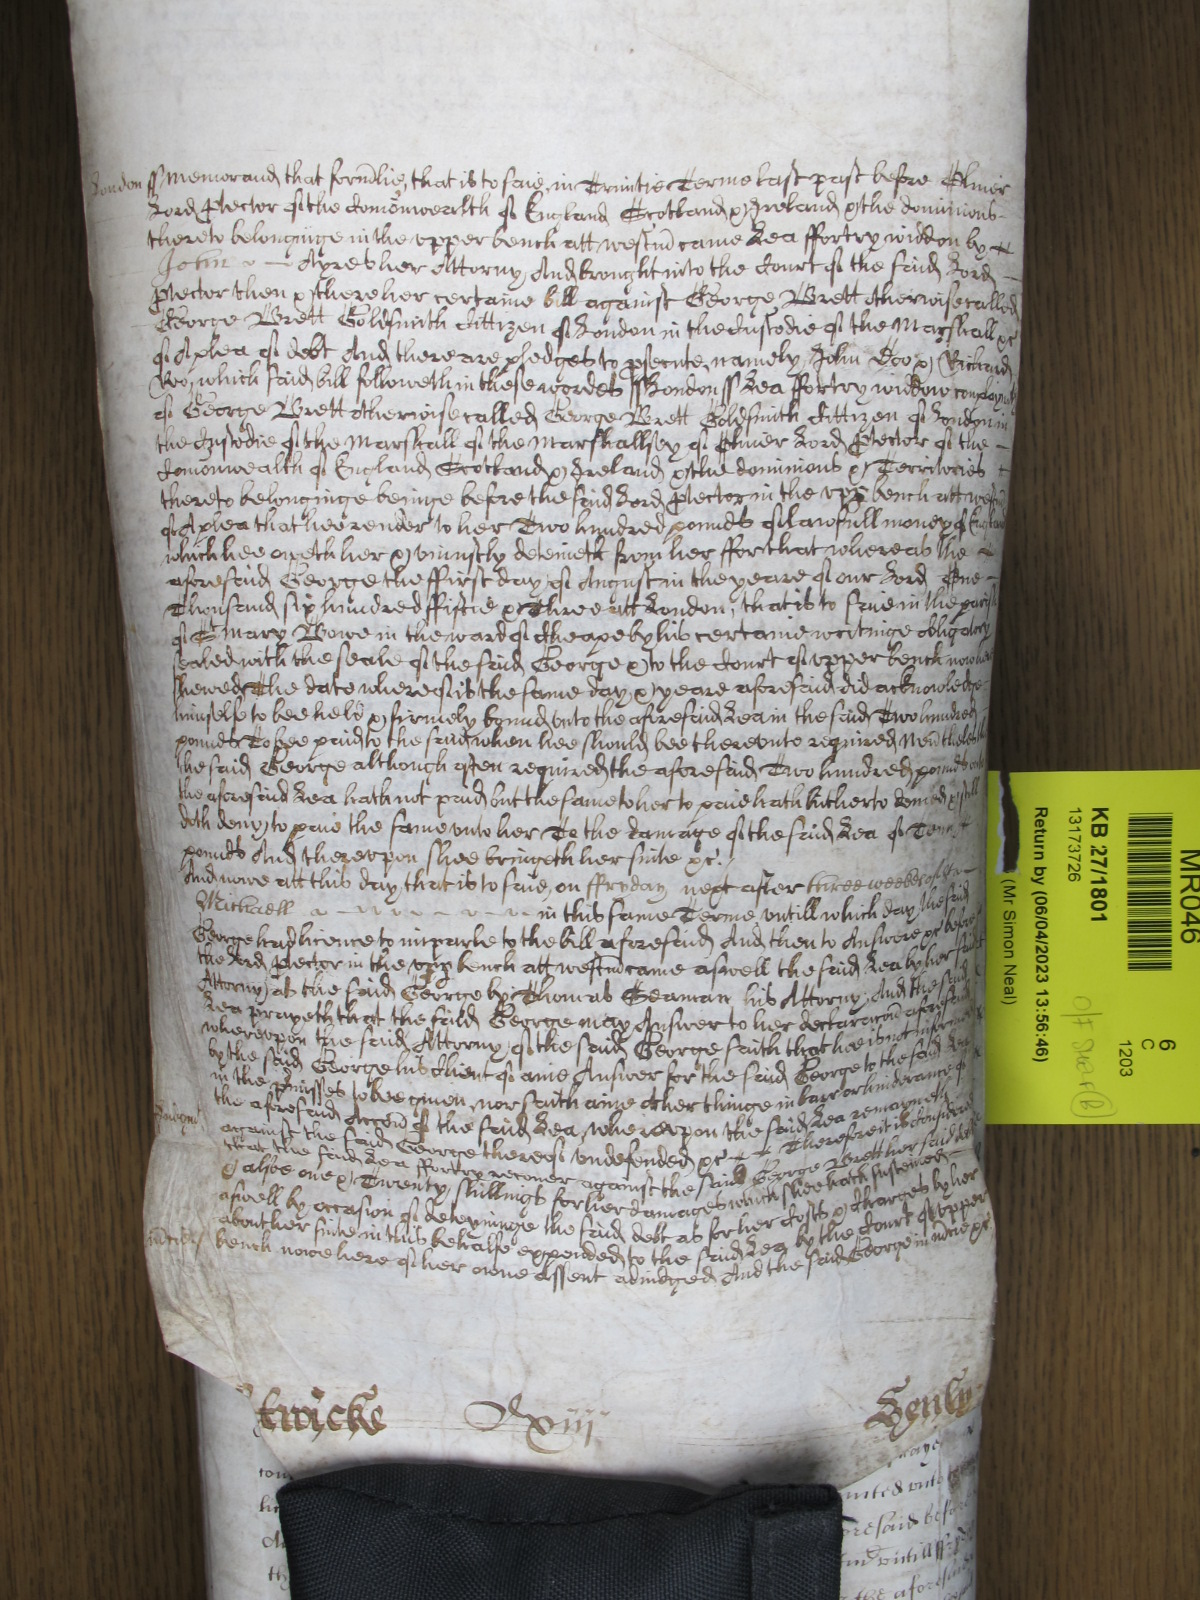 London ss Memorand that form̃lie, that is to saie, in Trinitie Terme last past before Oliver
Lord Ptector of the Com̃onwealth of England Scotland & Ireland & the dominions
thereto belonginge in the vpper bench att westm̃ came Lea ffortry widdow by
John Ayres her Attorny And brought into the Court of the said Lord
Ptector then & there her certaine bill against George Brett otherwise called
George Brett Goldsmith Cittizen of London in the Custodie of the Marshall &c
of A plea of debt And there are pledges to psecute, namely, John Doo & Richard
Roo, which said bill followeth in these wordes ss London ss Lea ffortry widdow complayneth
of George Brett otherwise called George Brett Goldsmith Cittizen of London in
the Custodie of the Marshall of the Marshallsey of Oliver Lord Ptector of the
Com̃onwealth of England Scotland & Ireland & the dominions & Territories
thereto belonginge beinge before the said Lord Ptector in the vpp bench att westm̃
of A plea that hee render to her Two hundred pounds of lawfull money of England
which hee oweth her & vniustly deteineth from her ffor that whereas the
aforesaid George the ffirst day of August in the yeare of our Lord One
Thousand six hundred ffiftie & Three att London, that is to saie in the parish
of St Mary Bowe in the ward of Cheape by his certaine writinge obligatory
sealed with the seale of the said George & to the Court of vpper bench now here
shewed The date whereof is the same day & yeare aforesaid did acknowledge
himselfe to bee held & firmely bound vnto the aforesaid Lea in the said Two hundred
pounds To bee paid to the said when hee should bee therevnto required Neu'theles
the said George although often required the aforesaid Two hundred pounds vnto
the aforesaid Lea hath not paid but the same to her to paie hath hitherto denied & still
doth deny to paie the same vnto her To the damage of the said Lea of Tenn
pounds And therevpon shee bringeth her suite &c.
And nowe att this day, that is to saie, on ffryday next after three weekes of St
Michaell in this same Terme vntill which day the said
George had licence to imparle to the bill aforesaid And then to Answere &c before
the Lord Ptector in the vpp bench att westm̃ came aswell the said Lea by her said
Attorny as the said George by Thomas Seaman his Attorny, And the said
Lea prayeth that the said George may Answer to her declarac̃on aforesaid
wherevpon the said Attorny of the said George saith that hee is not informed
by the said George his Client of anie Answer for the said George to the said Lea
in the pmisses to bee given, nor saith anie other thinge in barr or hinderance of
the aforesaid Acc̃on of the said Lea, wherevpon the said Lea remayneth
Judgmt against the said George thereof vndefended &c Therefore it is considered
that the said Lea ffortry recover against the said George Brett her said debt
& alsoe one & Twenty shillings for her damages which shee hath susteined
aswell by occasion of deteyninge the said debt as for her Costs & Charges by her
about her suite in this behalfe expended to the said Lea by the Court of vpper
m̃cie bench nowe here of her owne Assent adiudged And the said George in m̃cie &c
twicke Cxiij Henly
MR046
6
C
1203
KB 27/1801
13173726
Return by (06/04/2023 13:56:46)
(Mr Simon Neal)